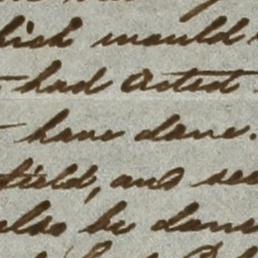 which would
had acted
have done.
field, and see
also be done